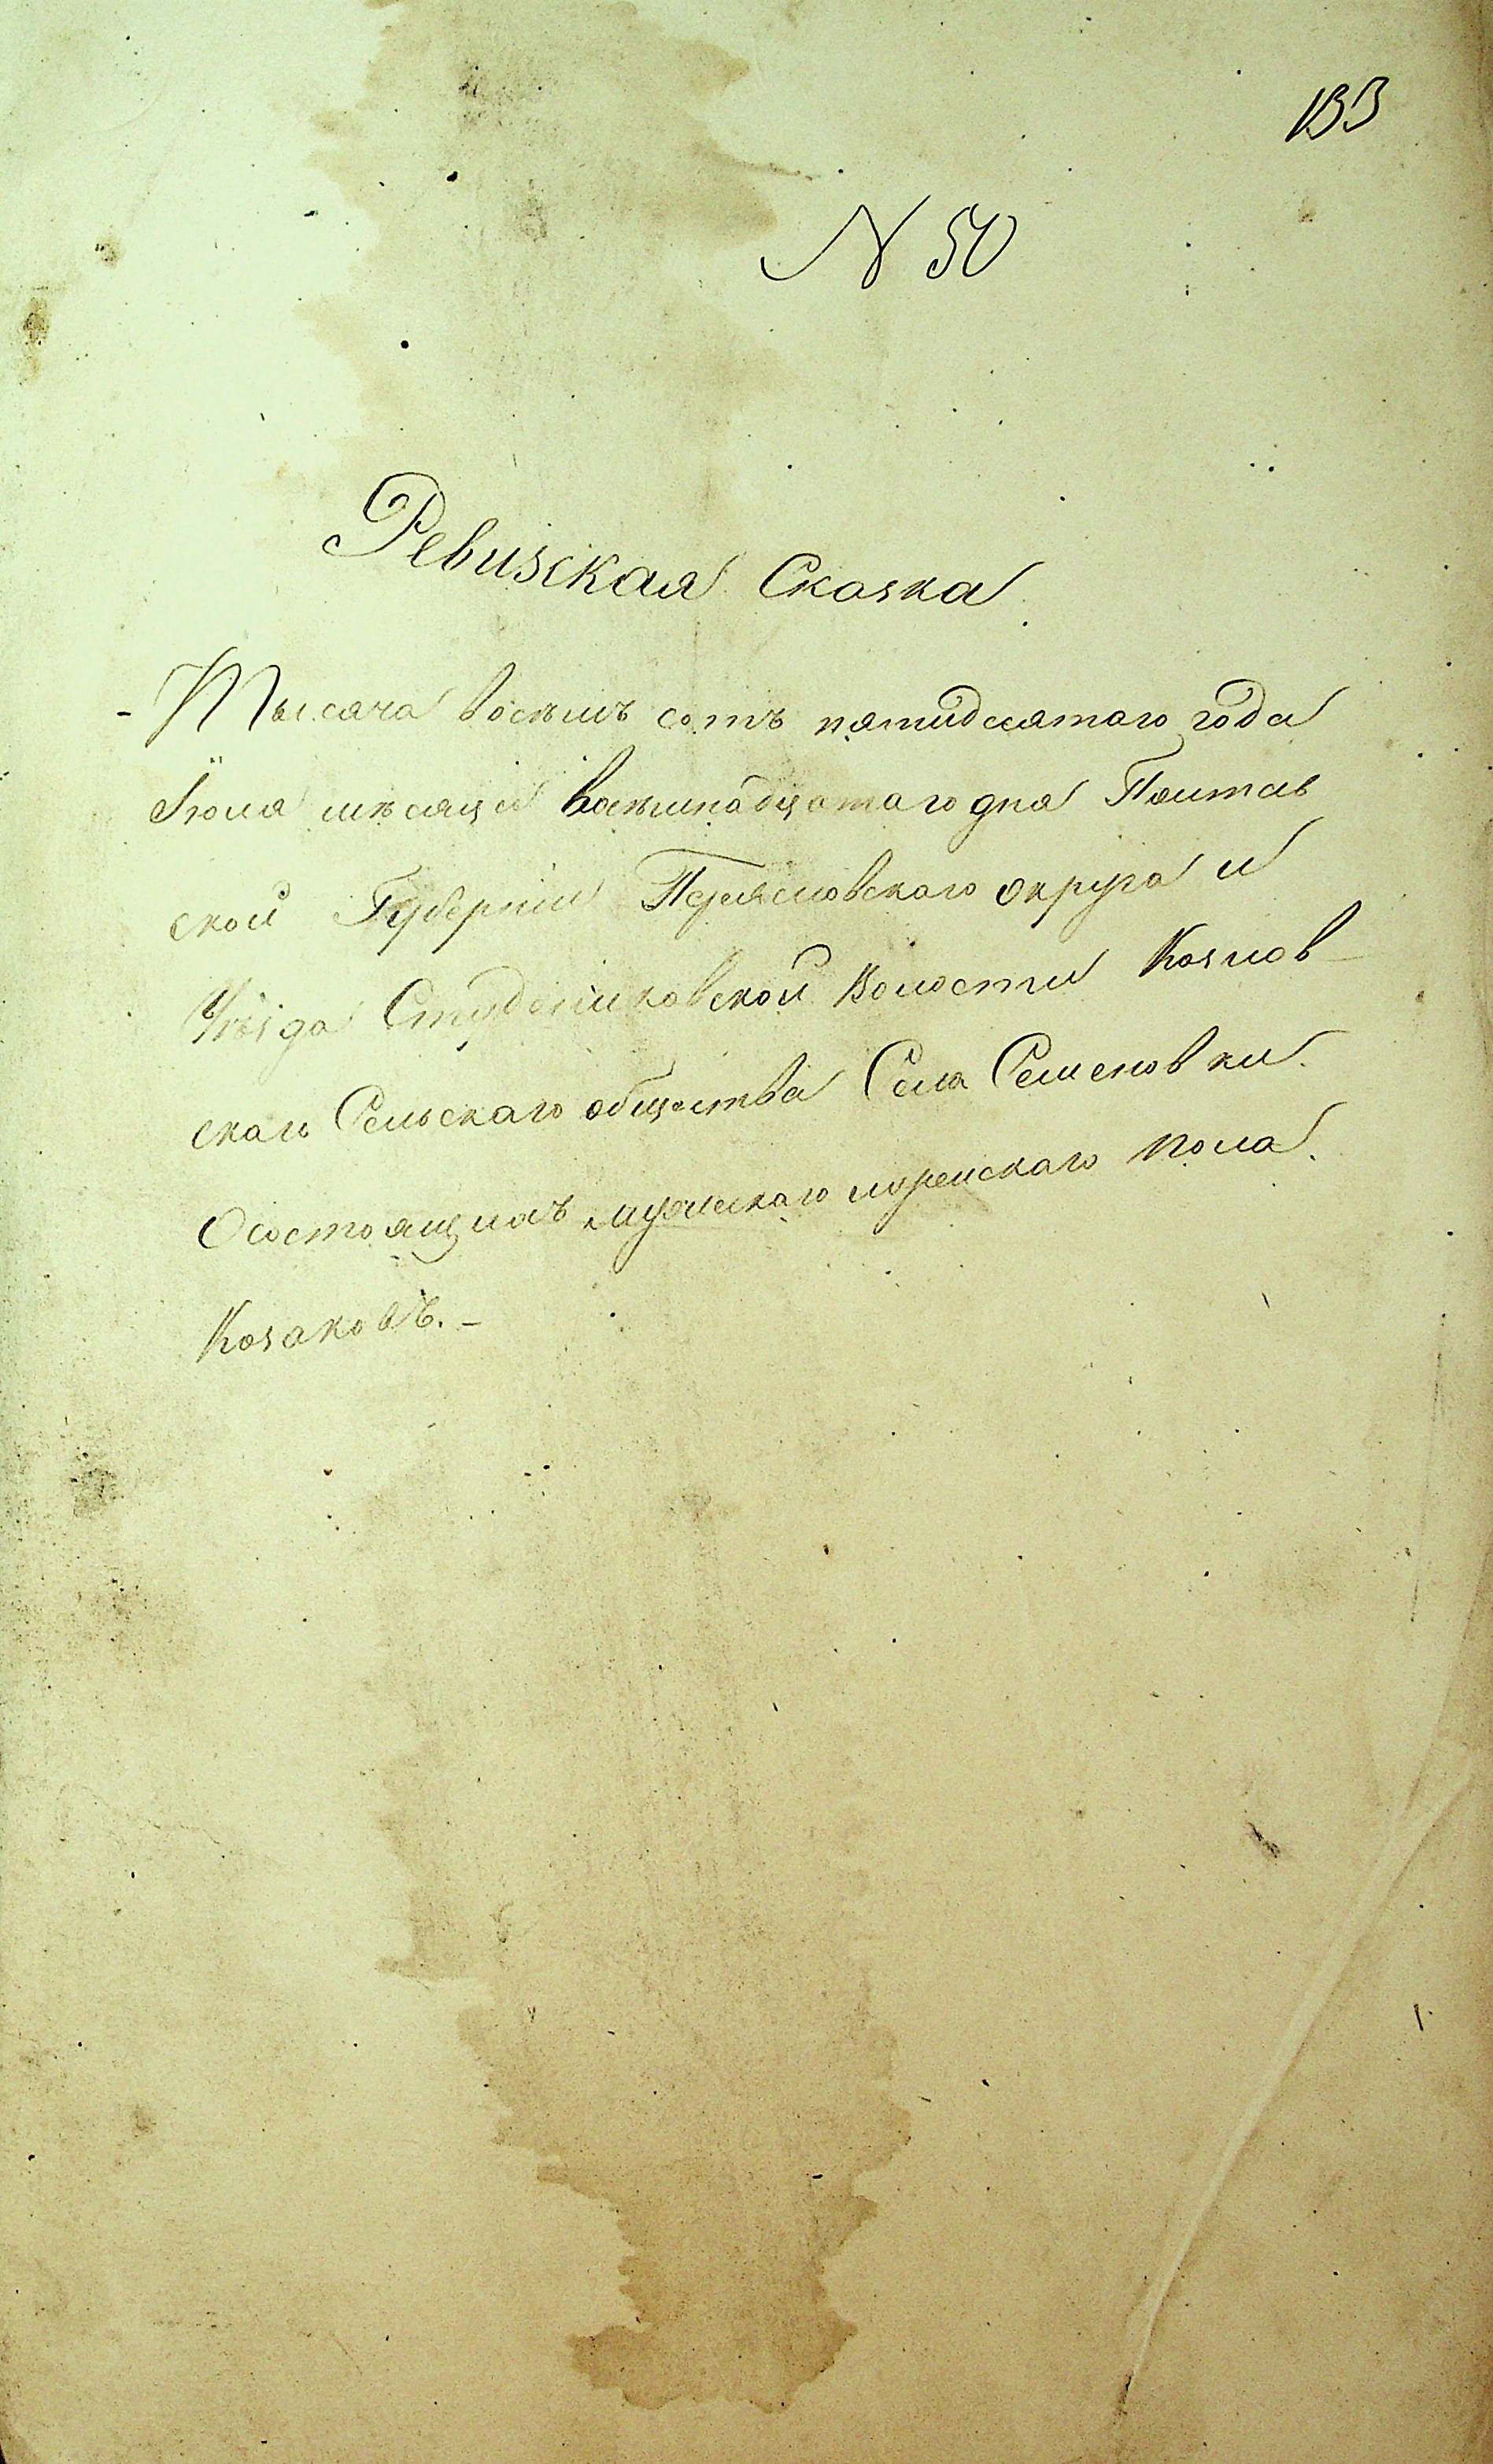 133
N 50
Ревизская Сказка
Тысяча восемь сотъ пятидесятаго года
Іюля мѣсяца восемнадцатаго дня Полтав
ской Губерніи Переяславского округа и
Уѣзда Студениковской Волости Козлов-
скаго Сельскаго общества Села Семеновки
О состоящихъ мужескаго пола
Козаковъ.-